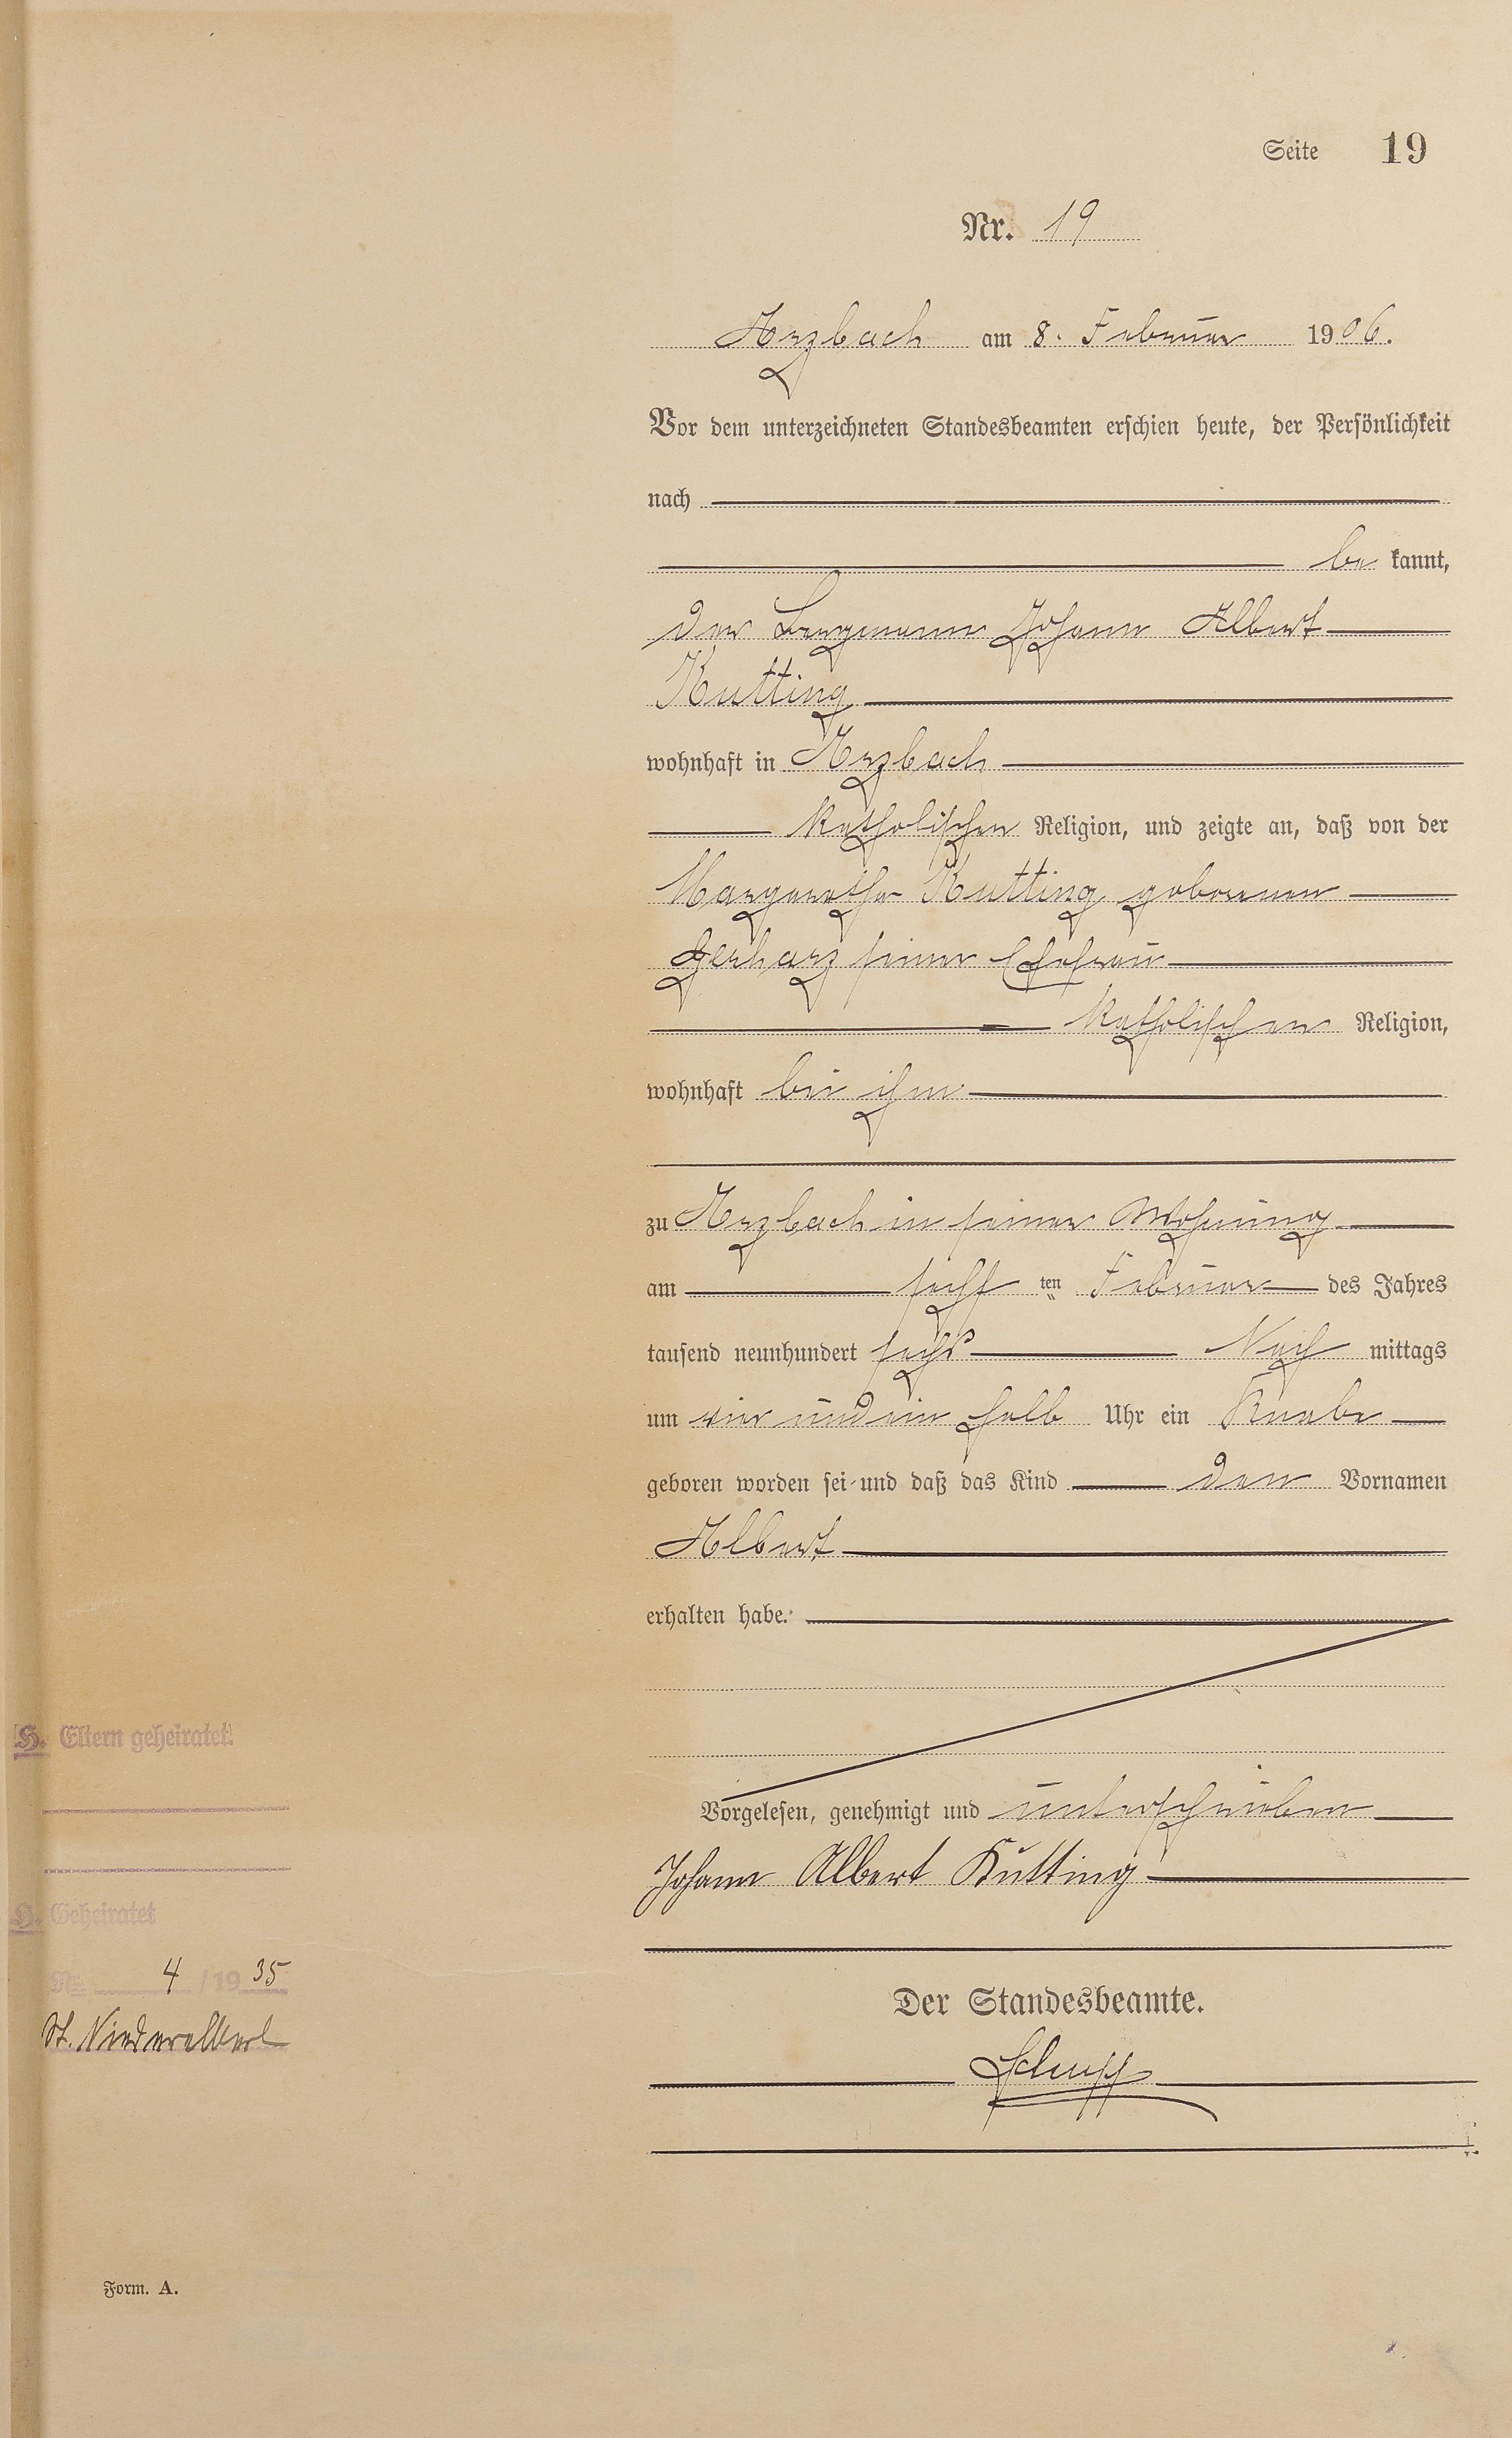 Seite 19
Nr. 19
Arzbach am 8. Februar 1906.
Vor dem unterzeichneten Standesbeamten erschien heute, der Persönlichkeit
nach
be kannt,
der Bergmann Johann Albert
Kutting
wohnhaft in Arzbach
katholischer Religion, und zeigte an, daß von der
Margaretha Kutting geborenen
Gerharz seiner Ehefrau
katholischer Religion,
wohnhaft bei ihm
zu Arzbach in seiner Wohnung
am sechsten Februar des Jahres
tausend neunhundert sechs Nach mittags
um vier und ein halb Uhr ein Knabe
geboren worden sei und daß das Kind den Vornamen
Albert
erhalten habe.
Vorgelesen, genehmigt und unterschrieben
Johann Albert Kutting
Der Standesbeamte.
H. Eltern geheiratet!
H. Geheiratet
Nr. 4 / 1935
St. Niederelbert
Form. A.